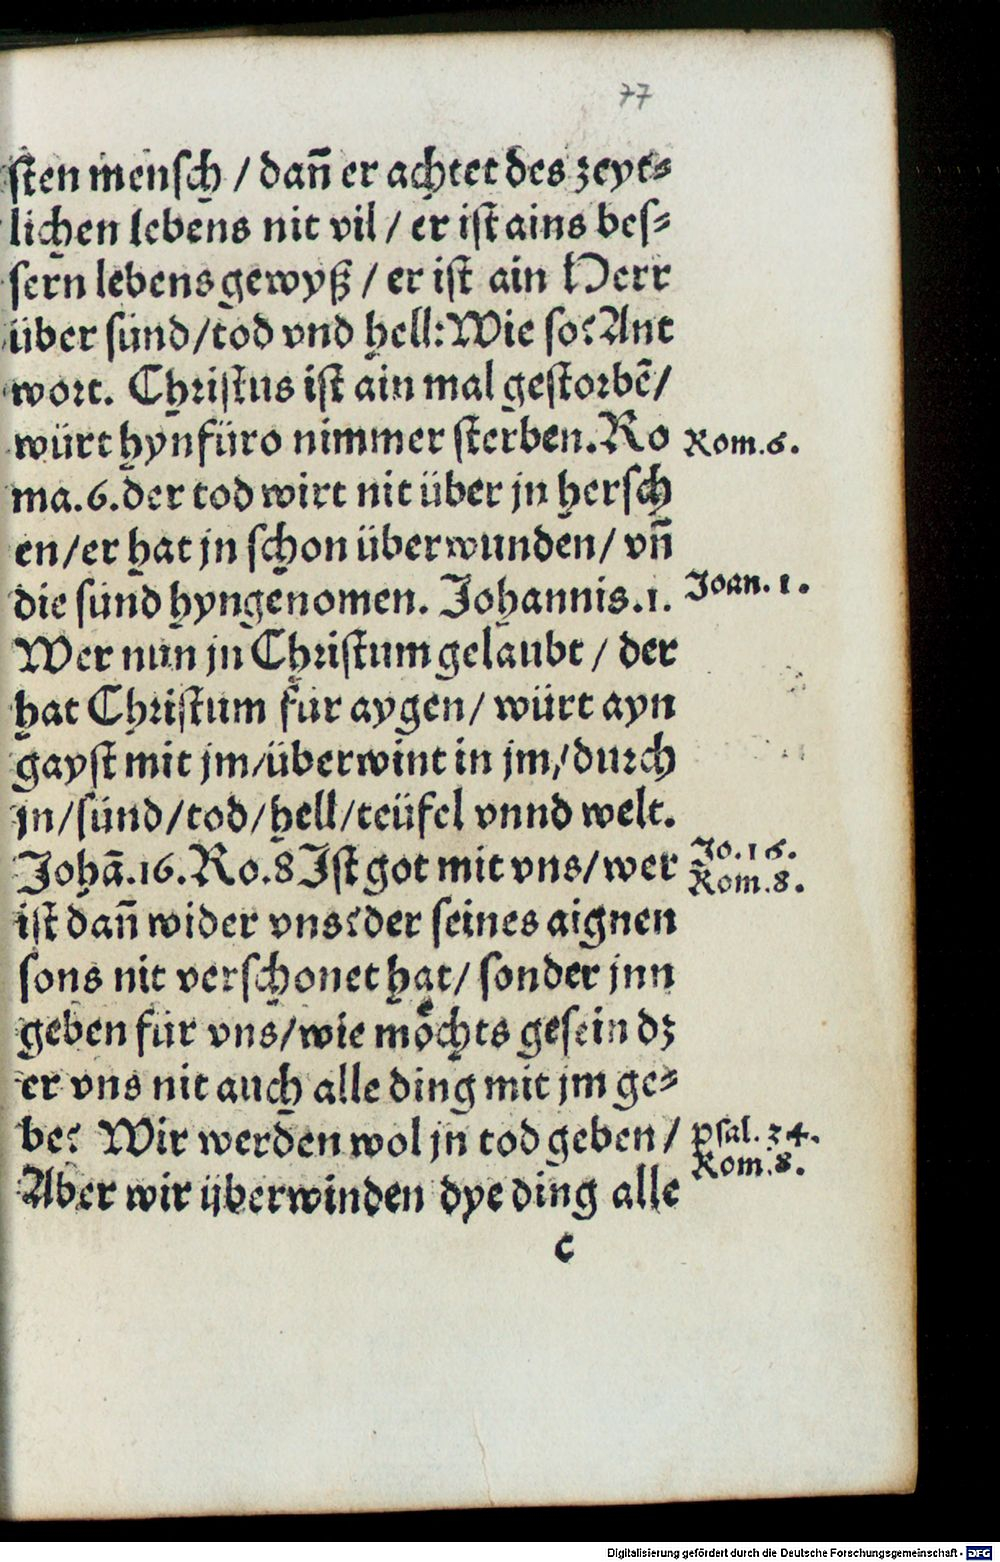 77
sten mensch / dañ er achtet des zeyt⸗
lichen lebens nit vil / er ist ains bes⸗
sern lebens gewyß / er ist ain Herr
über sünd/tod vnd hell: Wie so? Ant
wort. Christus ist ain mal gestorbē/
würt hynfüro nimmer sterben. Ro
Rom.6.
ma.6.der tod wirt nit über jn hersch
en/er hat jn schon überwunden/ vñ
die sünd hyngenomen. Johannis.1.
Joan. 1.
Wer nun jn Christum gelaubt / der
hat Christum für aygen/ würt ayn
gayst mit jm/überwint in jm/durch
jn/sünd/tod/hell/teüfel vnnd welt.
Johā.16.Ro.8 Ist got mit vns/wer
Jo.16.
Rom.8.
ist dañ wider vns? der seines aignen
sons nit verschonet hat/ sonder jnn
geben für vns/wie moͤchts gesein dz
er vns nit auch alle ding mit jm ge⸗
be? Wir werden wol jn tod geben /
psal. 34.
Rom.8.
Aber wir überwinden dye ding alle
c
Digitalisierung gefördert durch die Deutsche Forschungsgemeinschaft - DFG